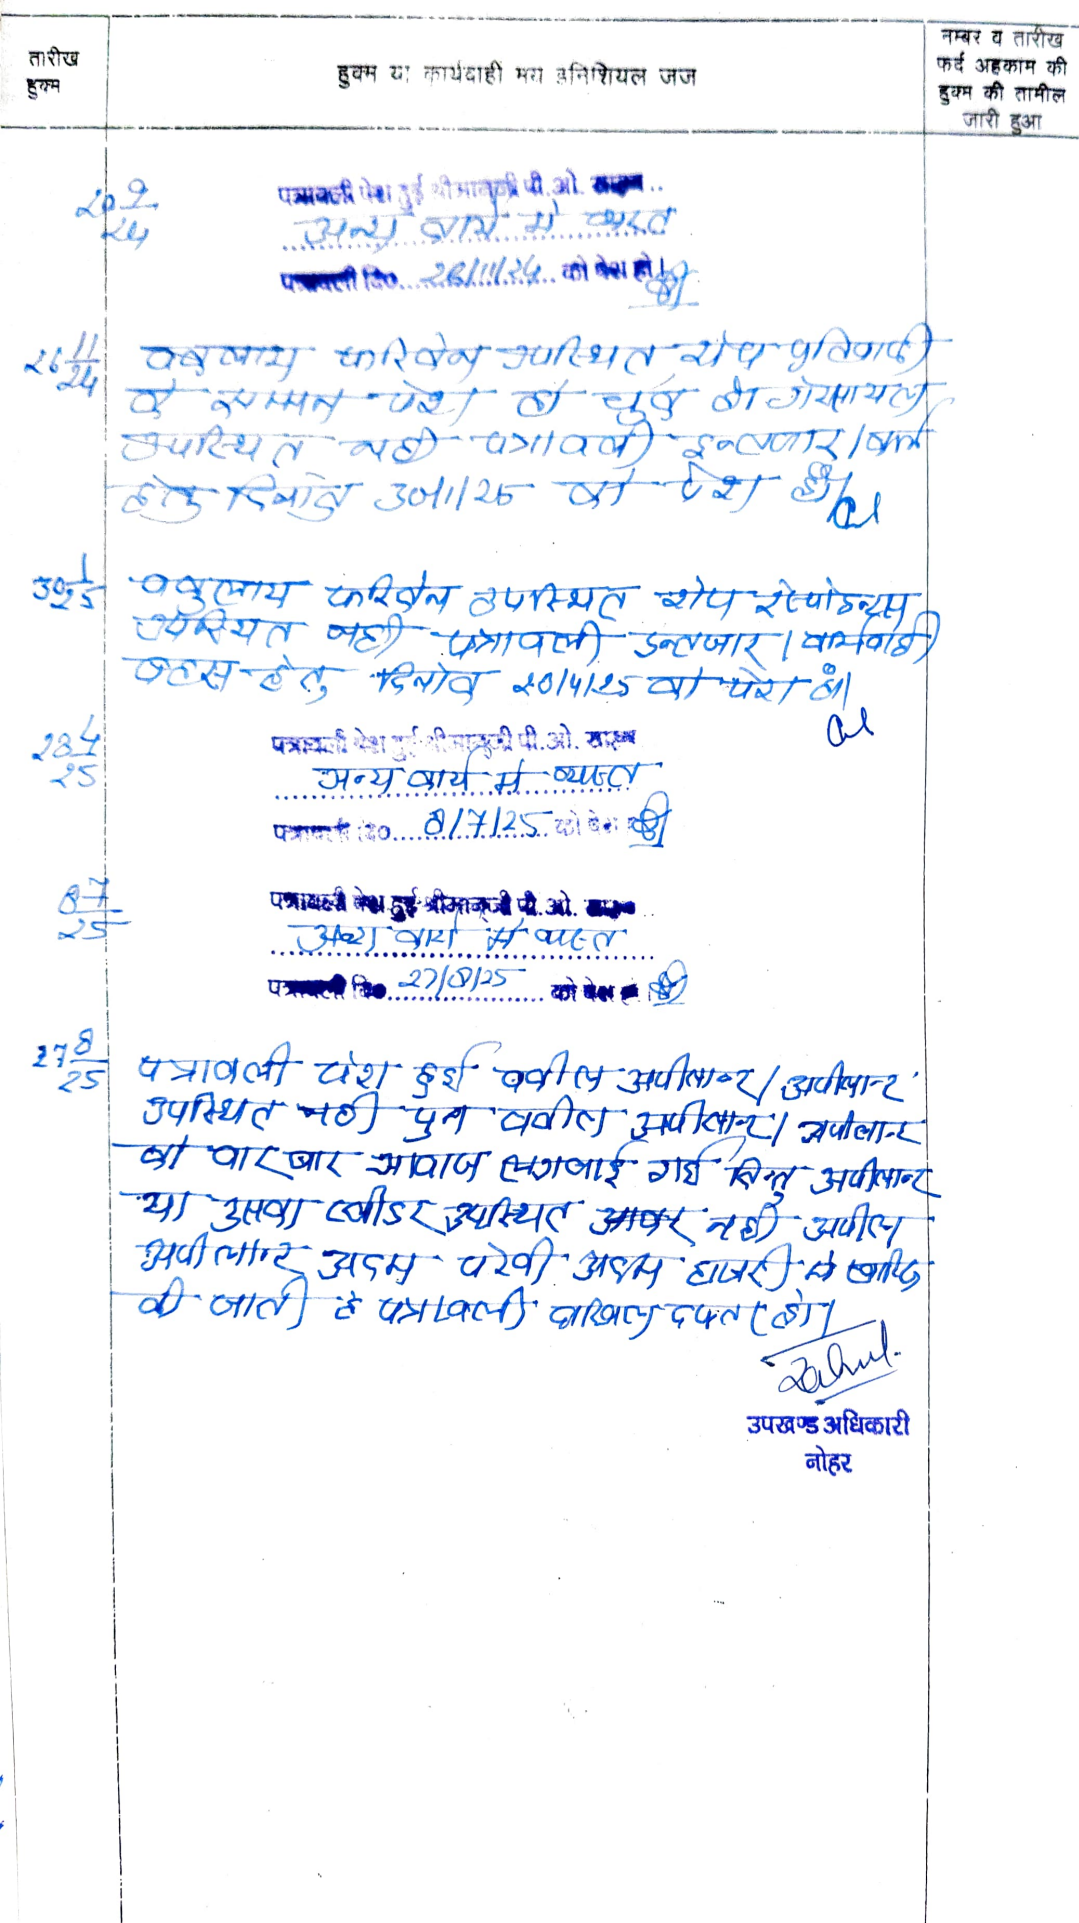 तारीख
हुक्म
हुक्म या कार्यवाही मय इनिशियल जज
नम्बर व तारीख
फर्द अहकाम की
हुक्म की तामील
जारी हुआ
20 9/24
पत्रावली पेश हुई श्रीमानजी पी.ओ. साहब..
अन्य कार्य मे व्यस्त
पत्रावली दि०....26/11/24... को पेश हो।
26 11/24
वकुलाय फरिकेन उपस्थित शेष प्रतिवादी
के सम्मन पेश हो चुके है। गैरसायल
उपस्थित नही पत्रावली इन्तजार।
हेतु दिनांक 30/1/25 को पेश हो।
30 1/25
वकुलाय फरिकेन उपस्थित शेष रेस्पोडेन्टस
उपस्थित नही पत्रावली इन्तजार। कार्यवाही
बहस हेतु दिनांक 28/4/25 को पेश हो।
28 4/25
पत्रावली पेश हुई श्रीमानजी पी.ओ. साहब
अन्य कार्य मे व्यस्त
पत्रावली दि०....8/7/25... को पेश हो
8 7/25
पत्रावली पेश हुई श्रीमानजी पी.ओ. साहब
अन्य कार्य मे व्यस्त
पत्रावली दि०..27/8/25... को पेश हो।
27 8/25
पत्रावली पेश हुई वकील अपीलान्ट/अपीलान्ट
उपस्थित नही पुन वकील अपीलान्ट/अपीलान्ट
को बार बार आवाज लगवाई गई किन्तु अपीलान्ट
या उसका प्लीडर उपस्थित आकर नही अपील
अपीलान्ट अदम पैरवी अदम हाजरी मे खारिज
की जाती है पत्रावली दाखिल दफ्तर हो।
उपखण्ड अधिकारी
नोहर